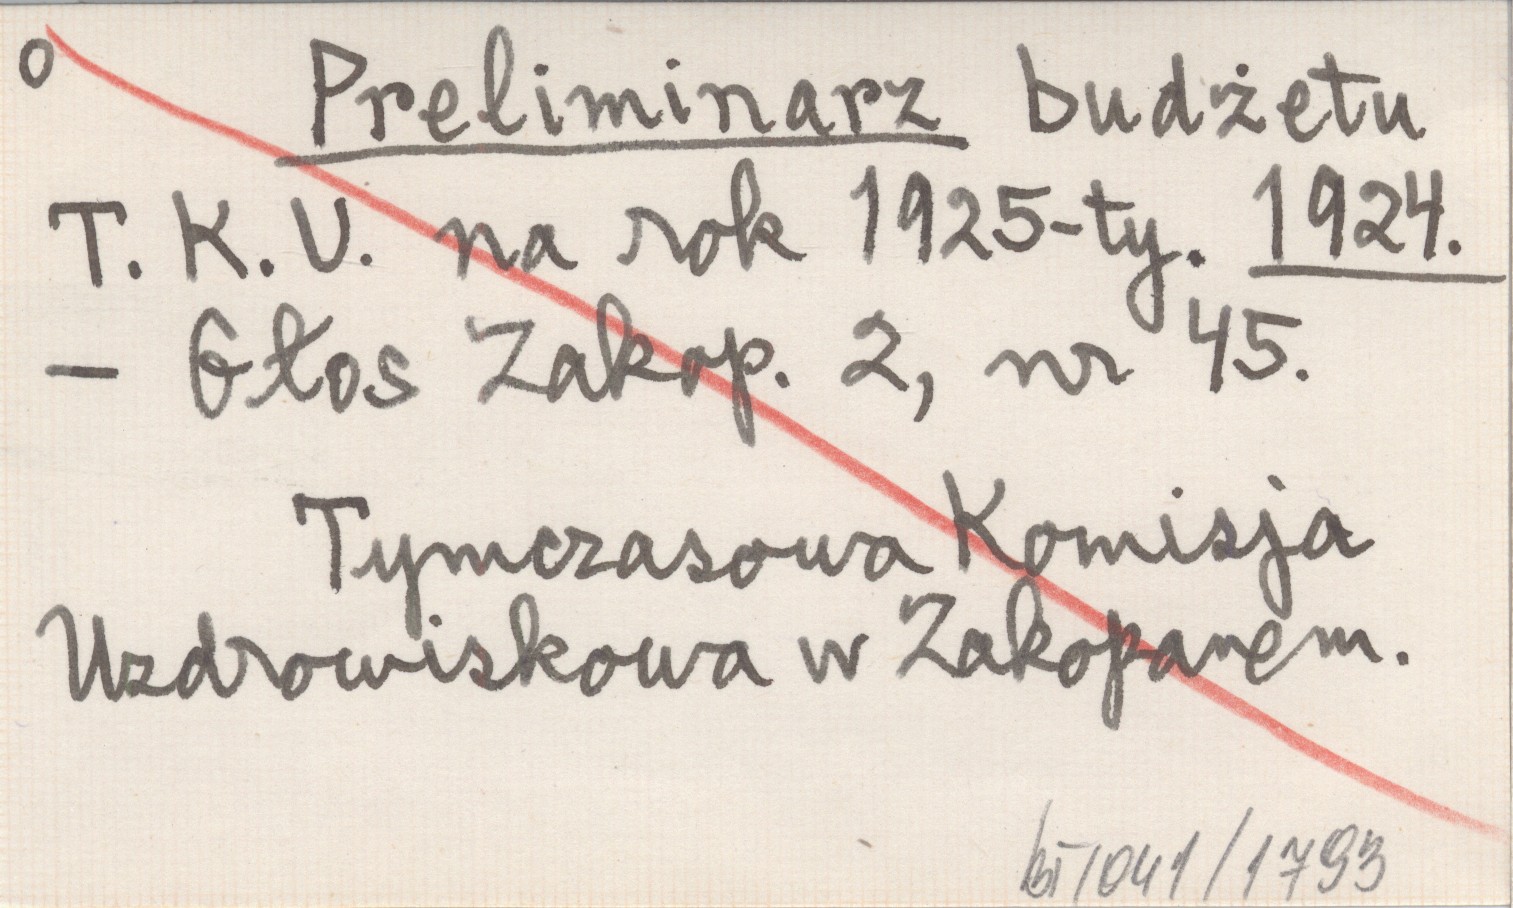 o Preliminarz budżetu
T. K. U. na rok 1925-ty. 1924.
– Głos Zakop. 2, nr 45.
Tymczasowa Komisja
Uzdrowiskowa w Zakopanem.
bł/041/1793